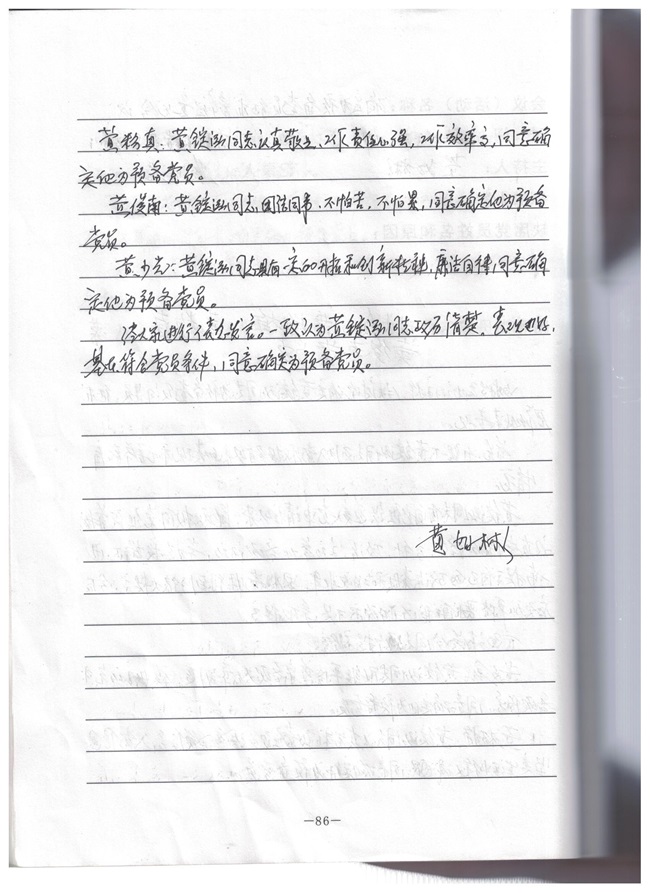 黄粉真：黄锭泓同志认真敬业，工作责任心强，工作效率高，同意确
定他为预备党员。
黄俊南：黄锭泓同志团结同事，不怕苦，不怕累，同意确定他为预备
党员。
黄少：黄锭泓同志具有一定的开拓和创新精神，廉洁自律，同意确
定他为预备党员。
大家进行了表决发言。一致认为黄锭泓同志政历清楚，表现好，
基本符合党员条件，同意确定为预备党员。
黄树
—86—